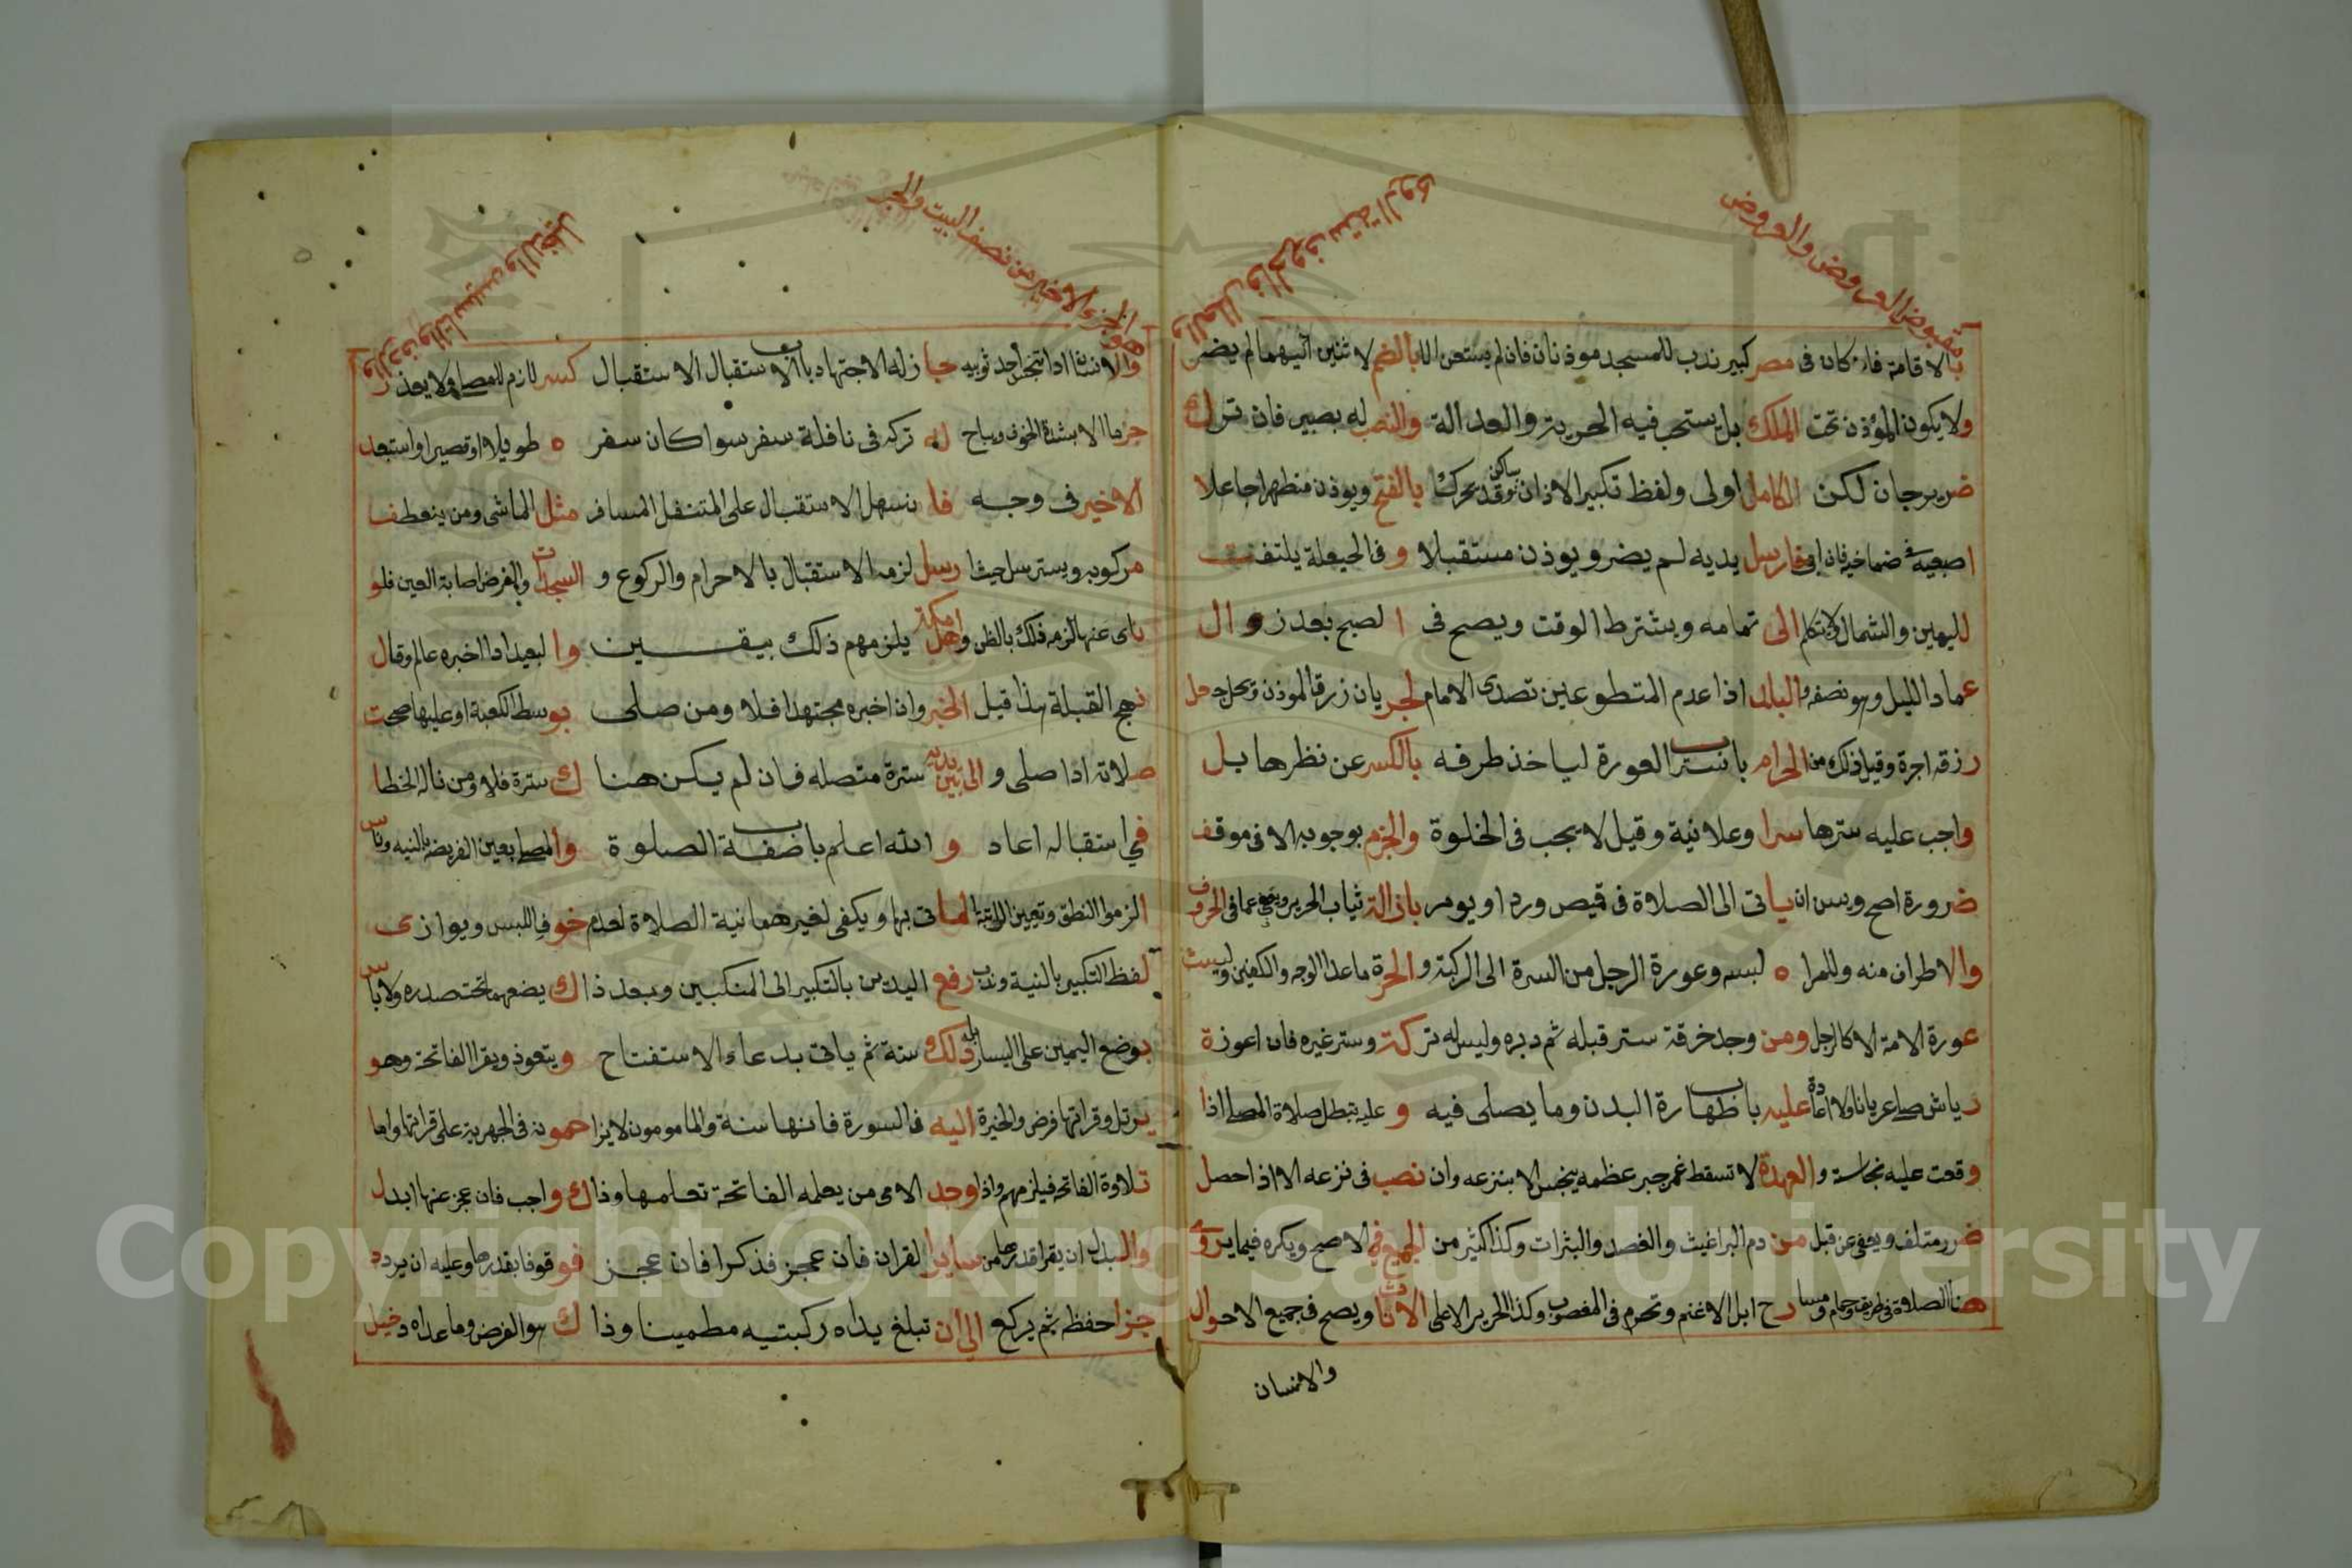 مقبوض العروض والعروض
والحروف ستة الروى
بالاقامة فان كان فى مصر كبير ندب للمسجد موذنان فان لم يستعن بالضم لاثنين اليهما لم يضر
ولا يكون المؤذن تحت الملك بل يستحب فيه الحرية والعدالة والنصب له بصير فان ترك
ضرير جان لكن الكامل اولى ولفظ تكبير الاذان ساكن وقد يحرك بالفتح ويوذن منطهرا جاعلا
اصبعيه فى ضماخيه فان ارسل يديه لم يضر ويوذن مستقبلا و فى الحيعلة يلتفت
لليمين والشمال ولا يتكلم الى تمامه ويشترط الوقت ويصح فى الصبح بعد زوال
عماد الليل وهو نصفه والبال اذا عدم المتطوعين تصدى الامام لجريان زرق الموذن وتحل
رزقه اجرة وقيل ذلك من الحرام باب ستر العورة لياخذ طرفه بالكسر عن نظرها بل
واجب عليه سترها سرا وعلانية وقيل لا يجب فى الخلوة والجزم بوجوبه الا فى موقف
ضرورة اصح ويسن ان ياتى الى الصلاة فى قميص وردا ويومر باذالة ثياب الحرير عما فى الحروف
والاطراف منه وللمراه لبسه وعورة الرجل من السرة الى الركبة والحرة ماعدا الوجه والكفين وليست
عورة الامة الا كالرجل ومن وجد خرقة ستر قبله ثم دبره وليس له تركته وستر غيره فان اعوزة
رياش صلى عريانا ولا اعادة عليه باب طهارة البدن وما يصلى فيه و عليه تبطل صلاة المصلى اذا
وقعت عليه نجاسة والعهدة لا تسقط عمن جبر عظمه بنجس الا بنزعه وان نصب فى نزعه الا اذا حصل
ضرر متلف ويعفى عن قبل من دم البراغيث والفصد والبثرات وكذا كثير من الجميع فى الاصح ويكره فيما يروى
هنا الصلاة فى طريق وحمام ومسارح ابل لا غنم وتحرم فى المغصوب وكذا الحرير الا على الاناث ويصح فى جميع الاحوال
والانسان
وهو الجزء الاخير من نصف البيت والجز
والردف والتاسيس والدخيل
والانسان اذا تنجس احد ثوبيه جاز له الاجتهاد باب الاستقبال الاستقبال كسر لازم للمصلى ولا يعذر
جرما الا بشدة الخوف ويباح له تركه فى نافلة سفر سوا كان سفره طويلا او قصيرا واستبعد
الاخير فى وجه فانسهل الاستقبال على المتنفل المسافر مثل الماشى ومن ينعطف
مركوبه ويسترسل حيث ارسل لزمه الاستقبال بالاحرام والركوع و السجدات والفرض اصابة العين فلو
ناى عنها لزمه فلك بالظن واهل مكة يلزمهم ذلك بيقين والبعيد اذا اخبره عالم وقال
نهج القبلة هذا قبل الخبر وان اخبره مجتهدا فلا ومن صلى بوسط الكعبة او عليها صحت
صلاته اذا صلى و الى بين يديه سترة متصله فان لم يكن هناك سترة فلا ومن ناله الخطا
فى استقباله اعاد و الله اعلم باب صفة الصلوة والمصلى يعين الفريضه بالنيه وناس
الزموا النطق وتعيين الراتبة لما تى بها ويكفى لغيرهما نية الصلاة لعدم خوف اللبس ويوازى
لفظ التكبير بالنية وندب رفع اليدين بالتكبير الى المنكبين وبعد ذاك يضعهما تحت صدره ولا باس
بوضع اليمين على اليسار بل ذلك سنة ثم ياتى بدعاء الاستفتاح ويتعوذ ويقرا الفاتحة وهو
يرتل وقراتها فرض والخيرة اليه فالسورة فانها سنة والمامومون لا يزاحمونه فى الجهرية على قراتها واما
تلاوة الفاتحة فيلزمهم واذا وجد الامى من يعلمه الفاتحة تعلمها وذاك واجب فان عجز عنها ابدل
والبدل ان يقرا قدرها من ساير القران فان عجز فذكرا فان عجز فوقوفا بقدرها وعليه ان يردد
جزا حفظه ثم يركع الى ان تبلغ يداه ركبتيه مطمينا وذاك هو الفرض وما عداه دخيل
Copyright © King Saud University